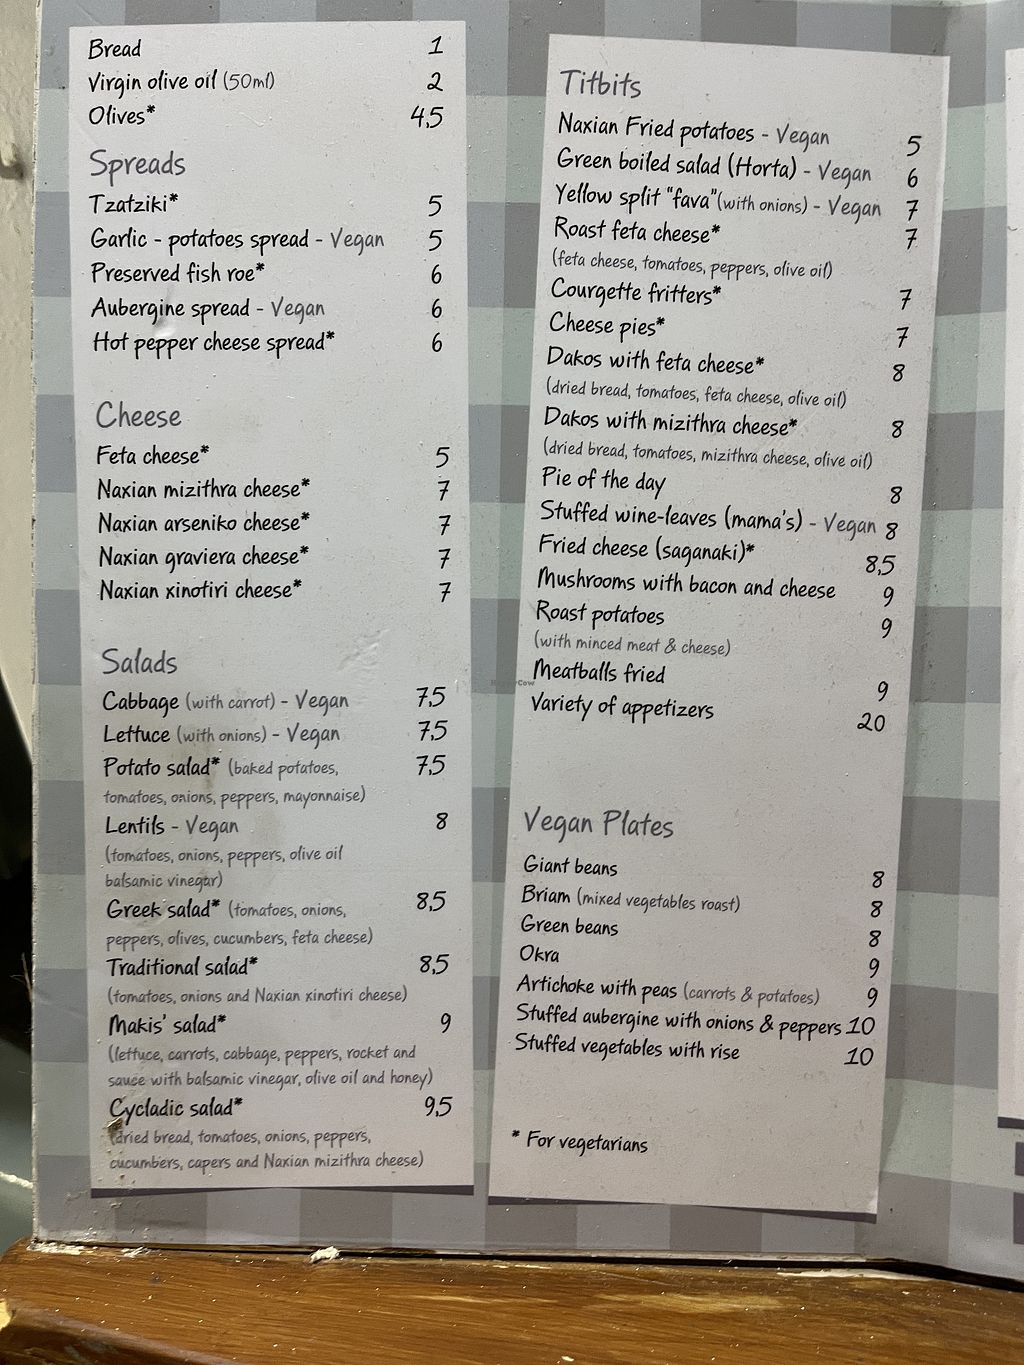 Bread 1
Virgin olive oil (50ml) 2
Olives* 4,5
Spreads
Tzatziki* 5
Garlic - potatoes spread - Vegan 5
Preserved fish roe* 6
Aubergine spread - Vegan 6
Hot pepper cheese spread* 6
Cheese
Feta cheese* 5
Naxian mizithra cheese* 7
Naxian arseniko cheese* 7
Naxian graviera cheese* 7
Naxian xinotiri cheese* 7
Salads
Cabbage (with carrot) - Vegan 7,5
Lettuce (with onions) - Vegan 7,5
Potato salad* (baked potatoes, 7,5
tomatoes, onions, peppers, mayonnaise)
Lentils - Vegan 8
(tomatoes, onions, peppers, olive oil
balsamic vinegar)
Greek salad* (tomatoes, onions, 8,5
peppers, olives, cucumbers, feta cheese)
Traditional salad* 8,5
(tomatoes, onions and Naxian xinotiri cheese)
Makis' salad* 9
(lettuce, carrots, cabbage, peppers, rocket and
sauce with balsamic vinegar, olive oil and honey)
Cycladic salad* 9,5
(dried bread, tomatoes, onions, peppers,
cucumbers, capers and Naxian mizithra cheese)
Titbits
Naxian Fried potatoes - Vegan 5
Green boiled salad (Horta) - Vegan 6
Yellow split "fava"(with onions) - Vegan 7
Roast feta cheese* 7
(feta cheese, tomatoes, peppers, olive oil)
Courgette fritters* 7
Cheese pies* 7
Dakos with feta cheese* 8
(dried bread, tomatoes, feta cheese, olive oil)
Dakos with mizithra cheese* 8
(dried bread, tomatoes, mizithra cheese, olive oil)
Pie of the day 8
Stuffed wine-leaves (mama's) - Vegan 8
Fried cheese (saganaki)* 8,5
Mushrooms with bacon and cheese 9
Roast potatoes 9
(with minced meat & cheese)
Meatballs fried 9
Variety of appetizers 20
Vegan Plates
Giant beans 8
Briam (mixed vegetables roast) 8
Green beans 8
Okra 9
Artichoke with peas (carrots & potatoes) 9
Stuffed aubergine with onions & peppers 10
Stuffed vegetables with rise 10
* For vegetarians